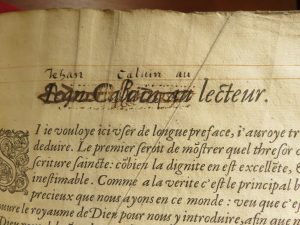 Jehan Caluin au
Iean Caluin au lecteur.
SI ie vouloye ici vſer de longue preface, i'auroye tr
deduire. Le premier ſeroit de mõſtrer quel threſor c
ſcriture ſainéte: cõbien la dignite en eſt excellẽte, &
ineſtimable. Comme a la verite c'eſt le principal b
precieux que nous ayons en ce monde: veu que c'eſ
le royaume de Dieu pour nous y introduire, afin que n